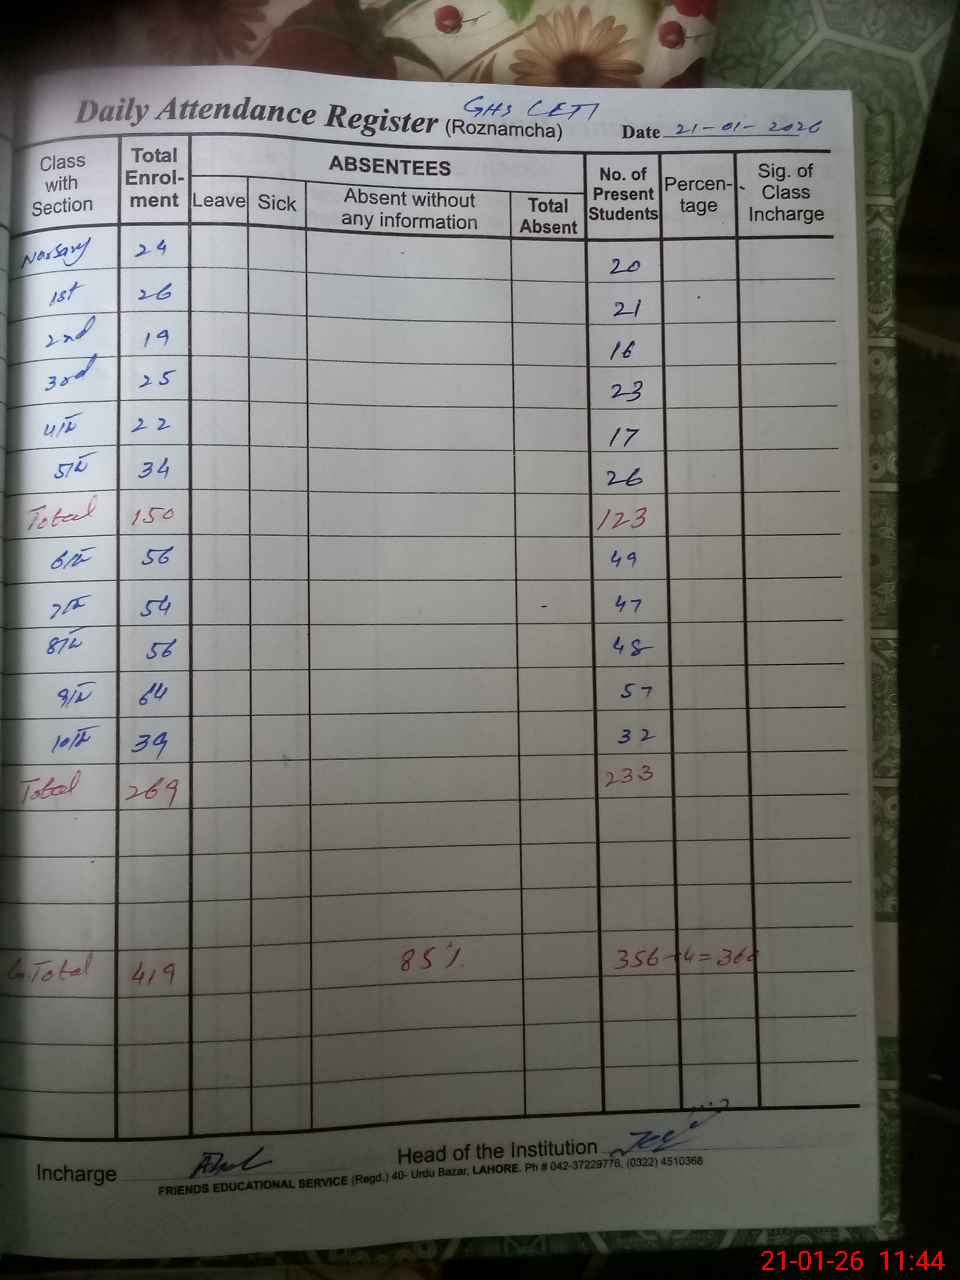 Daily Attendance Register (Roznamcha) GHS CETI Date 21-01-2026
Class with Section Total Enrol-ment ABSENTEES No. of Present Students Percen-tage Sig. of Class Incharge
Leave Sick Absent without any information Total Absent
Norsary 24 20
1st 26 21
2nd 19 16
3rd 25 23
4th 22 17
5th 34 26
Total 150 123
6th 56 49
7th 54 - 47
8th 56 48
9th 64 57
10th 39 32
Total 269 233
G.Total 419 85% 356+4=360
Incharge Head of the Institution
FRIENDS EDUCATIONAL SERVICE (Regd.) 40- Urdu Bazar, LAHORE. Ph # 042-37229778, (0322) 4510368
21-01-26 11:44